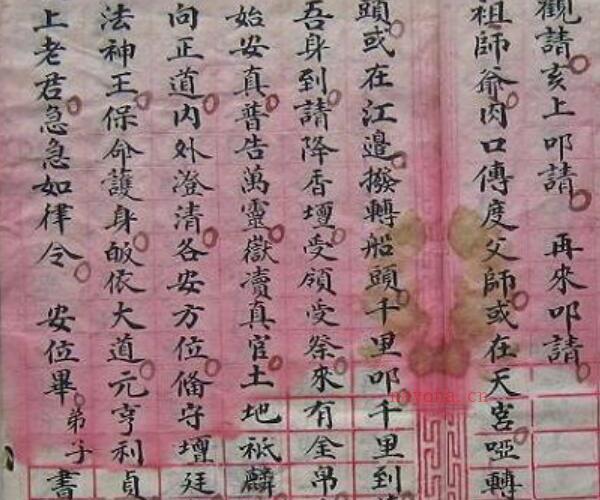 觀請亥上叩請 再來叩請
祖師爺肉口傳度父師或在天宮啞轉
頭或在江邊撥轉船頭千里叩千里到
吾身到請降香壇受領受祭來有金帛
始安真普告萬靈嶽瀆真官土地祇麟
向正道內外澄清各安方位俻守壇廷
法神王保命護身皈依大道元亨利貞
上老君急急如律令 安位畢 弟子書